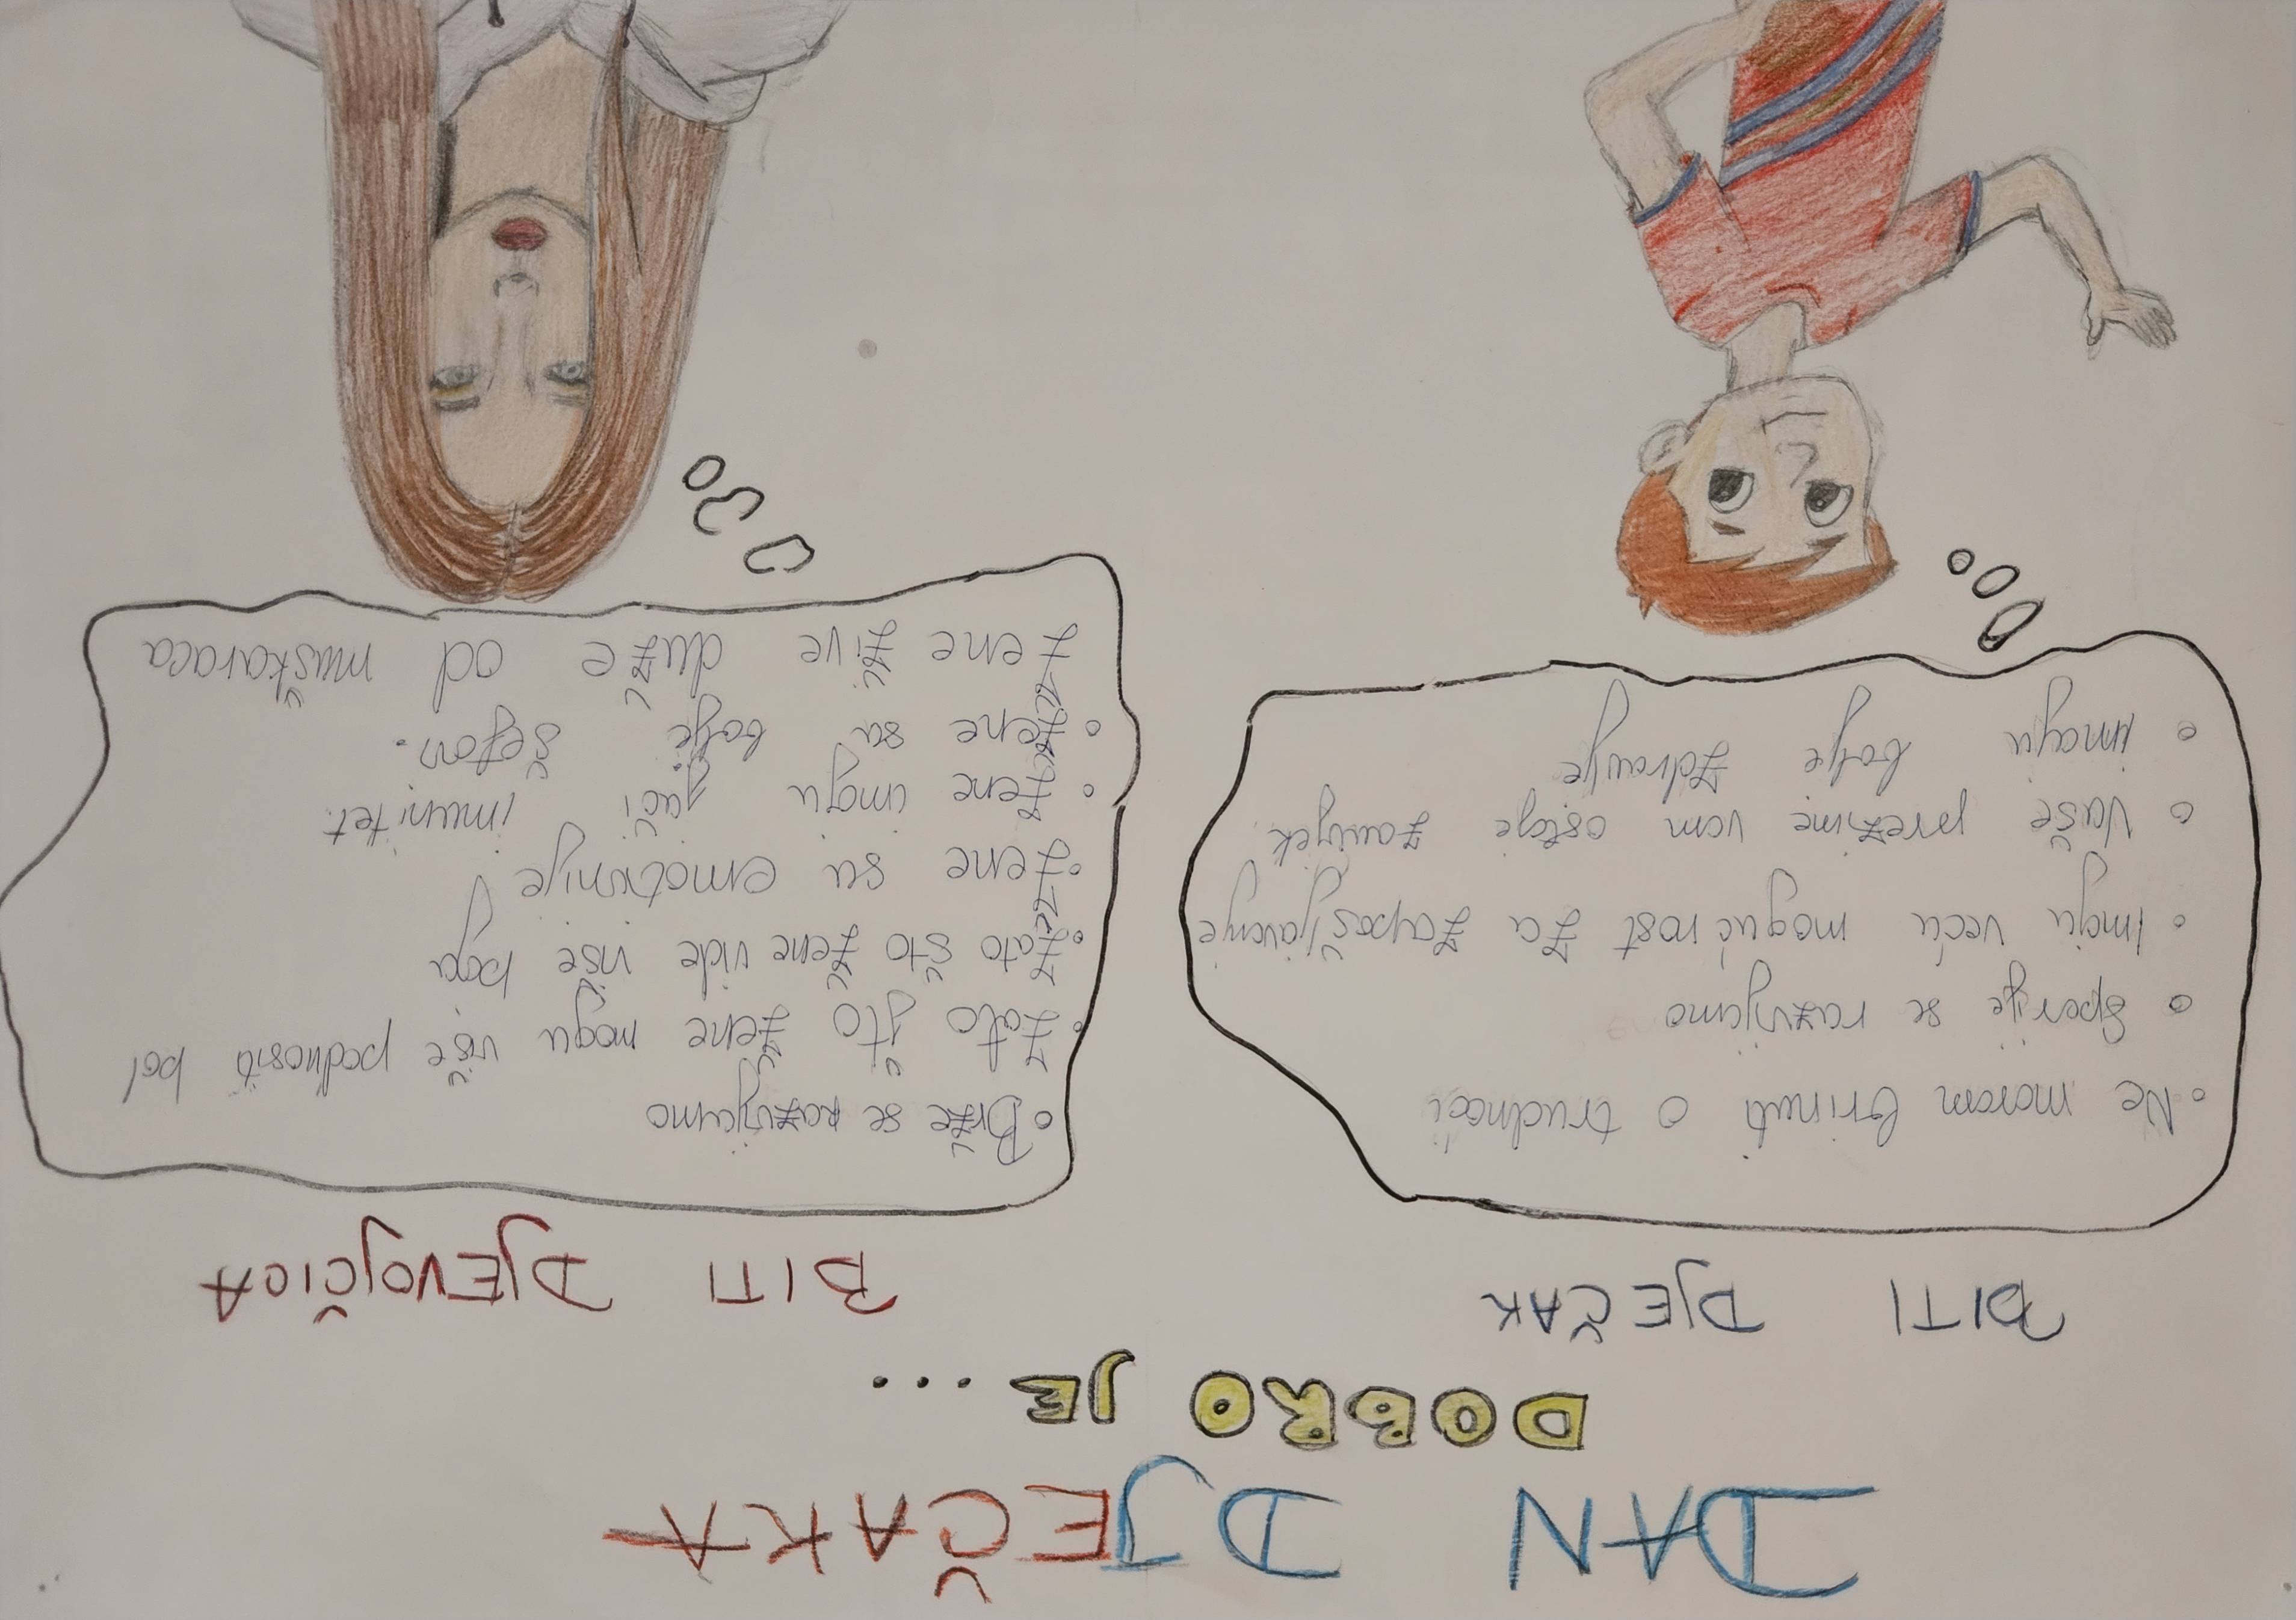 DAN DJEČAKA
DOBRO JE ...
BITI DJEČAK
• Ne moram brinuti o trudnoći
• Sporije se razvijamo
• Imaju veću mogućnost za zapošljavanje
• Vaše prezime vam ostaje zauvijek
• imaju bolje zdravlje
BITI DJEVOJČICA
• Brže se razvijamo
• Zato što žene mogu više podnositi bol
• Zato što žene vide više boja
• Žene su emotivnije
• Žene imaju jači imunitet.
• Žene su bolje šefov.
Žene žive duže od muškaraca